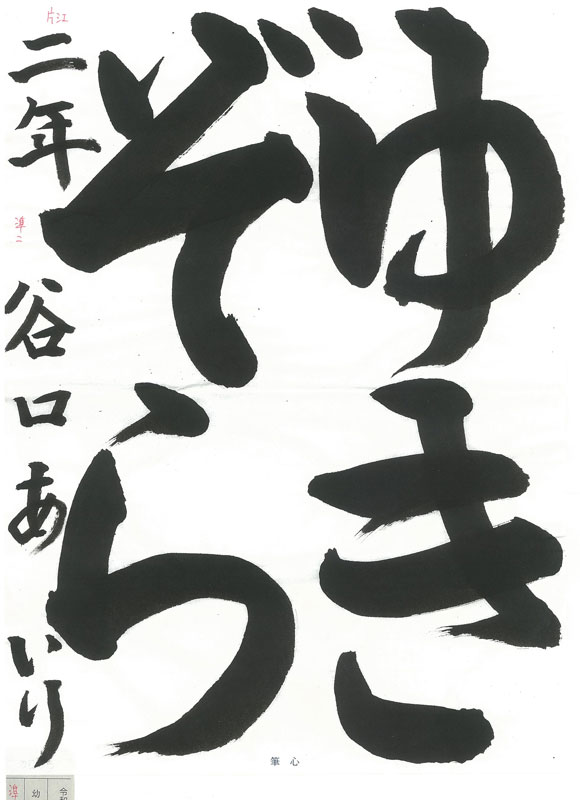 ゆき
ぞら
二年 谷口あいり
片江
準二
筆心
令和
幼
準